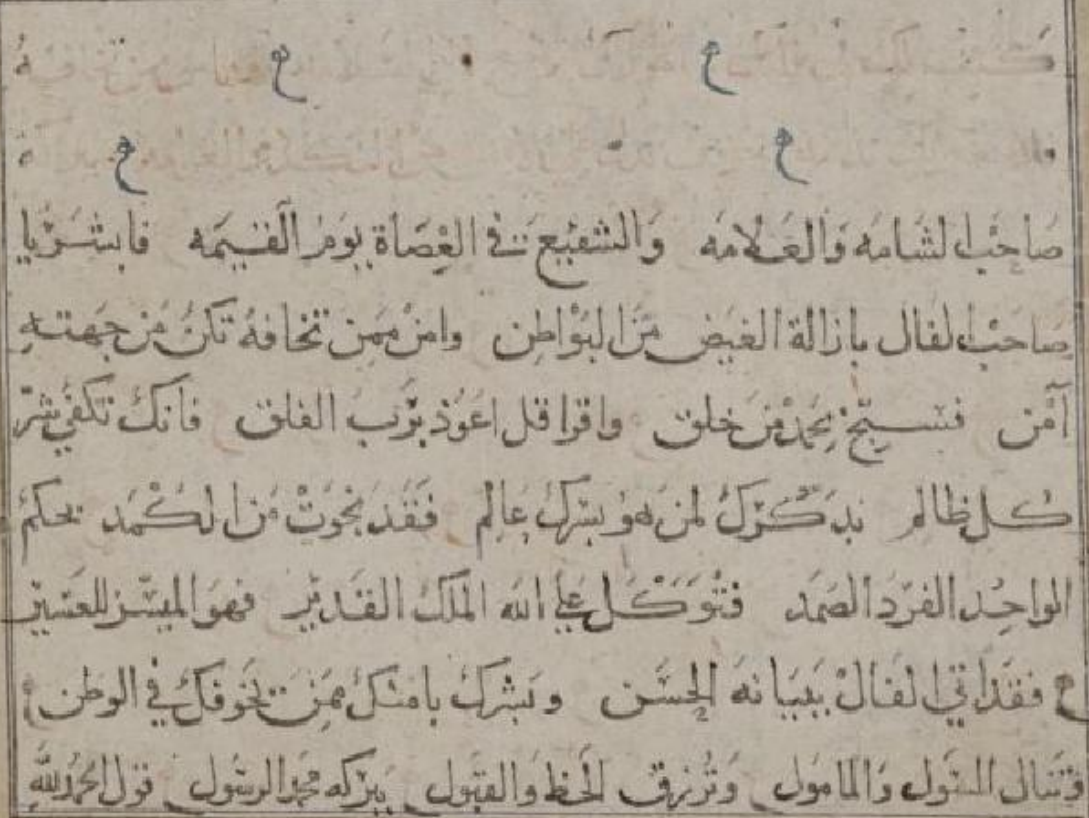 ع ع
ع ع
صَاحب الشامه وَالعَلامَه وَالشفيع في العصَاة يومُ القيمَه فابشر يا
صَاحب الفال بازالة الغيض من البوَاطن وامنُ ممن تخافهُ تكن من جهته
آمن فسبح بحمد من خلق واقرا قل اعوُذ برَب الفلق فانك تكفي شر
كل ظالم بذكرك لمن هو بسرك عالم فقد نجوت من الكمد بحكم
الواحد الفرد الصمد فتوكل علي الله الملك القدير فهو الميسر للعسير
ع فقد اتي الفال ببيانه الحسن وبشرك بامنك ممن تخوفك في الوطن
فتنال السول والمامول وترزق الحظ والقبول ببركه محمد الرسول قول الحمد لله